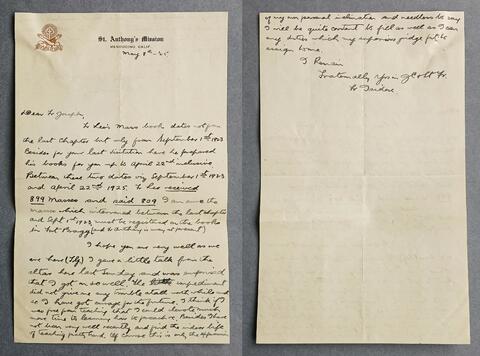 St. Anthony's Mission
MENDOCINO, CALIF.
May 8th - 25
Dear Fr Joseph,
Fr Leo's Mass book dates not from
the last Chapter but only from September 1st 1923
Besides for your last Visitation he have prepared
his books for you up to April 22nd inclusive
Between these two dates viz September 1st 1923
and April 22nd 1925. Fr Leo received
899 Masses and said 809. I am sure the
masses which intervened between the last chapter
and Sept 1st 1923 must be registered on the books
in Fort Bragg (and Fr Anthony is away at present)
I hope you are very well as we
are here I gave a little talk from the
altar here last Sunday and was surprised
that I got on so well. The impediment
did not give me any trouble at all worth while and
so I have got courage for the future. I think if I
was free from teaching that I could devote much
more time to learning how to preach etc. Besides I have
not been very well recently and find the indoor life
of teaching pretty hard. Of course this is only the expression
of my own personal inclination and needless to say
I will be quite content to fill as well as I can
any duties which my superiors judge fit to
assign to me.
I Remain
Fraternally Yrs in
Fr Isidore.